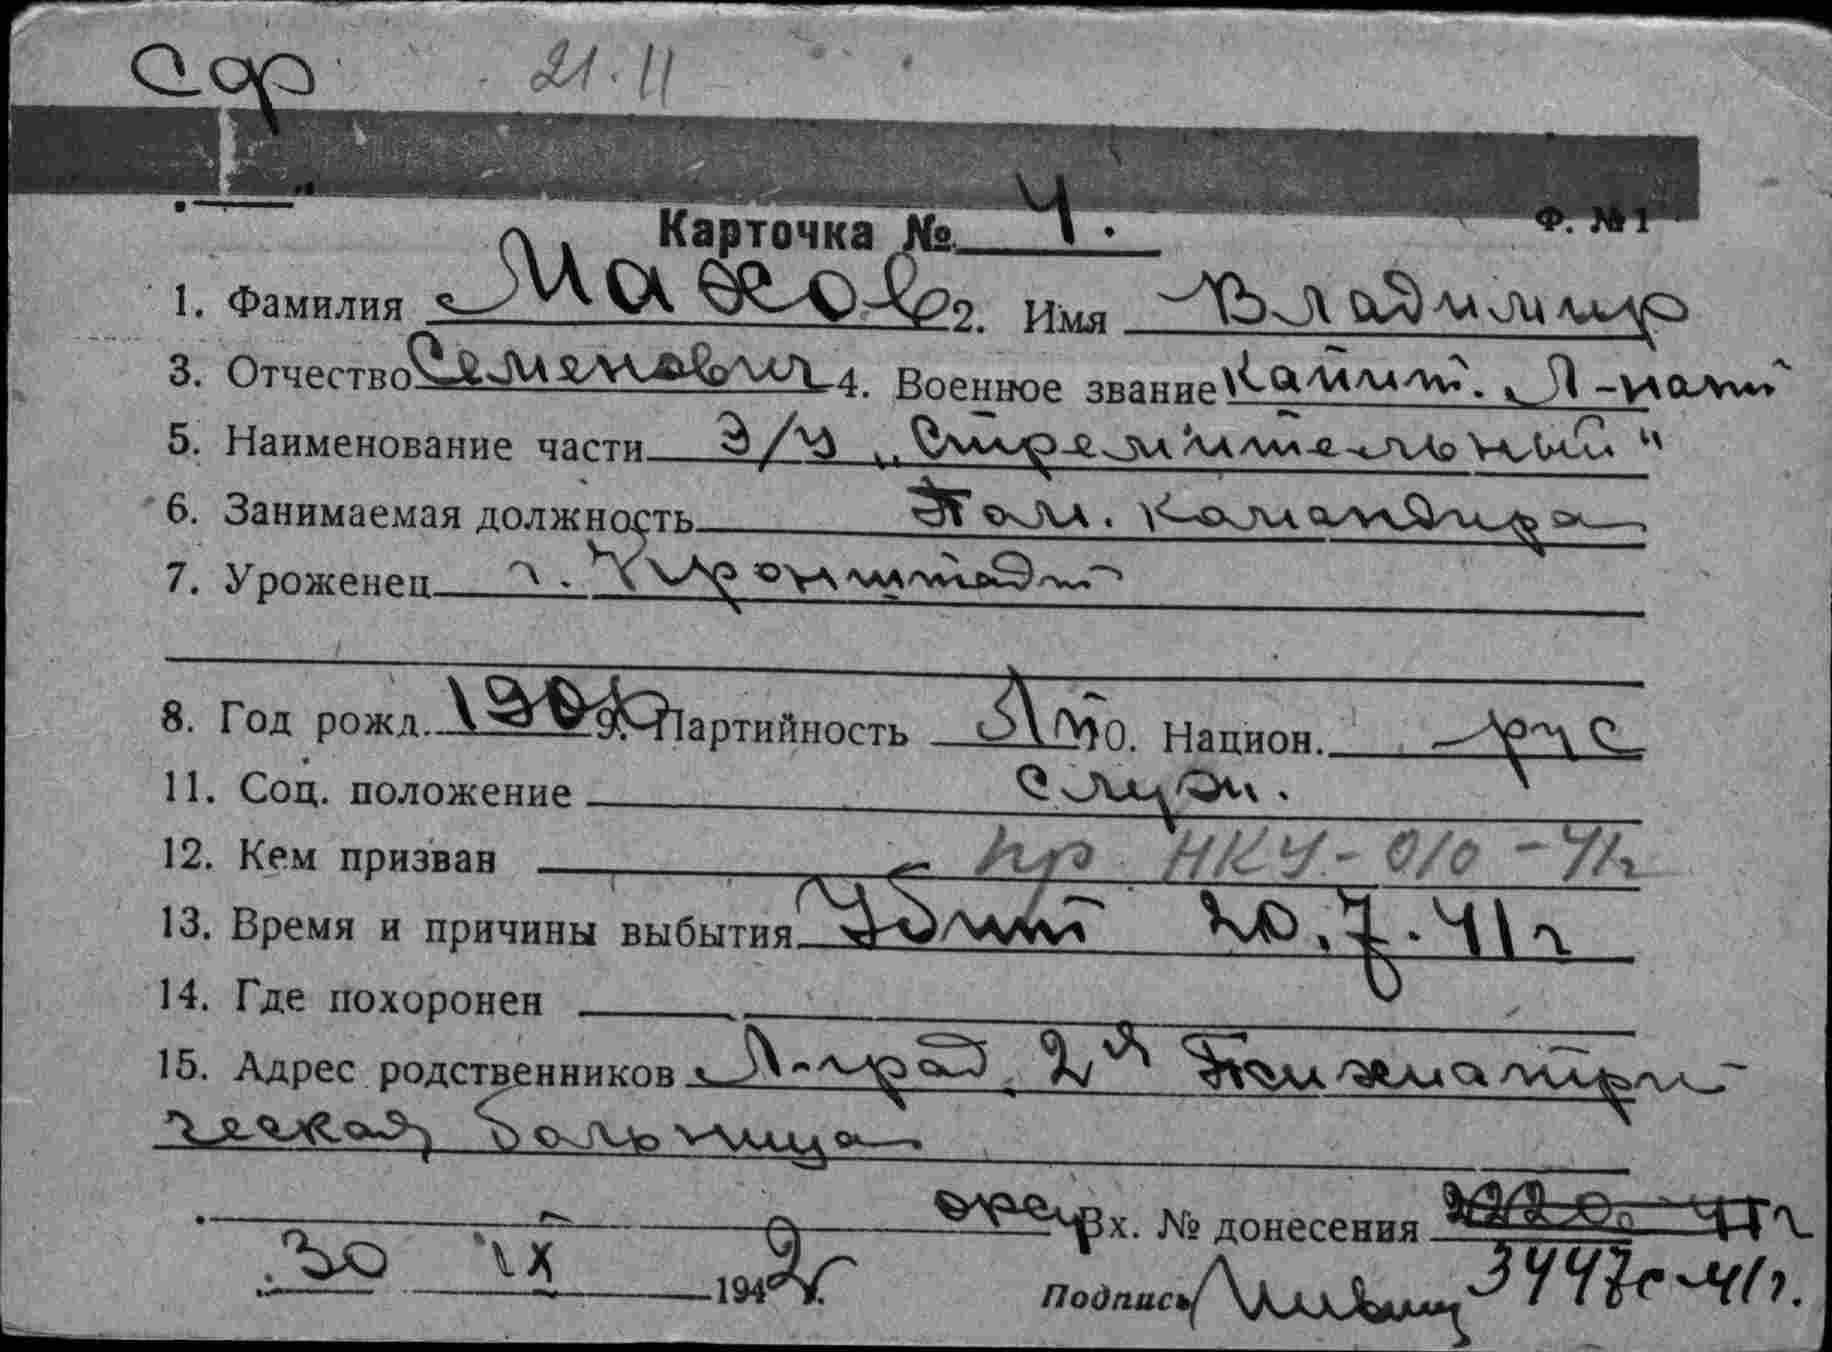 сф 21.11
Карточка № 4. Ф. № 1
1. Фамилия Махов 2. Имя Владимир
3. Отчество Семенович 4. Военное звание Капит. Л-нант
5. Наименование части Э/М „Стремительный"
6. Занимаемая должность Пом. командира
7. Уроженец г. Кронштадт
8. Год рожд. 190 9. Партийность 10. Национ. рус
11. Соц. положение служ.
12. Кем призван пр НКУ-010-41г
13. Время и причины выбытия Убит 20.7.41г
14. Где похоронен
15. Адрес родственников Л-град, 2я Психиатри
ческая больница
Вх. № донесения 2220с 41г
30 IX 1942 г. Подпись 3447с-41г.